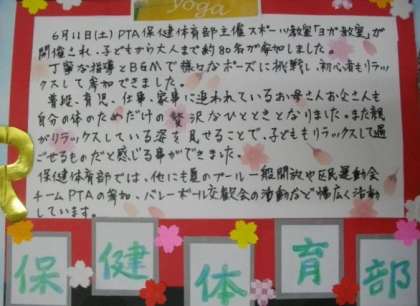 yoga
6月11日(土)PTA保健体育部主催スポーツ教室「ヨガ教室」が
開催され、子どもから大人まで約80名が参加しました。
丁寧な指導とBGMで様々なポーズに挑戦し、初心者もリラッ
クスして参加できました。
普段、育児、仕事、家事に追われているお母さんお父さんも
自分の体のためだけの贅沢なひとときとなりました。また親
がリラックスしている姿を見せることで、子どももリラックスして過
ごせるものだと感じる事ができました。
保健体育部では、他にも夏のプール一般開放や区民運動会
チームPTAの参加、バレーボール交歓会の活動など幅広く活動
しています。
保健体育部